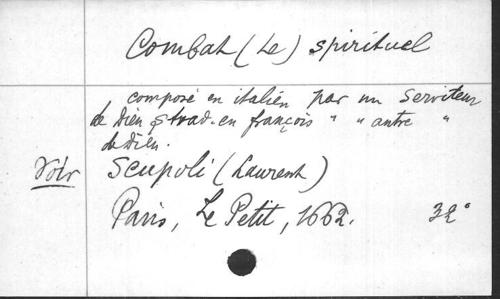 Combat (Le) spirituel
composé en italien par un Serviteur
de Dieu & trad. en françois " " autre "
de Dieu.
Voir Scupoli (Laurent)
Paris, Le Petit, 1662. 32°